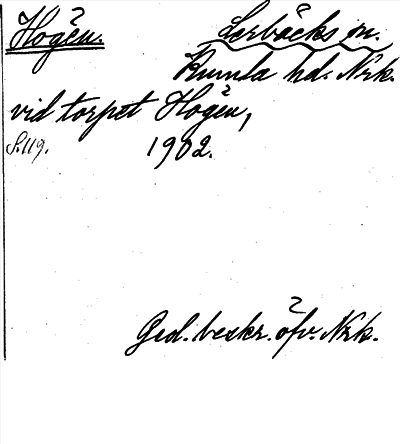 Hogén.
Lerbäcks sn.
Kumla hd. Nrk.
vid torpet Hogén,
S. 119. 1902.
Geol. beskr. öfv. Nrk.